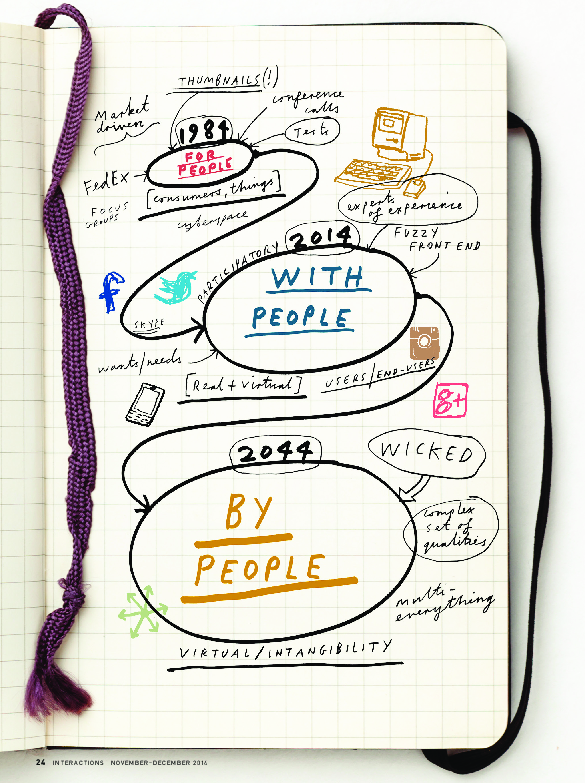 THUMBNAILS(!)
Market
driven
conference
calls
1984
Tests
FOR
PEOPLE
FedEx
[consumers, things]
FOCUS
GROUPS
cyberspace
experts
of experience
PARTICIPATORY
2014
FUZZY
FRONT END
WITH
PEOPLE
f
SKYPE
wants/needs
[Real + virtual]
USERS/END-USERS
g+
2044
WICKED
BY
PEOPLE
complex
set of
qualities
multi-
everything
VIRTUAL/INTANGIBILITY
24 INTERACTIONS NOVEMBER–DECEMBER 2014